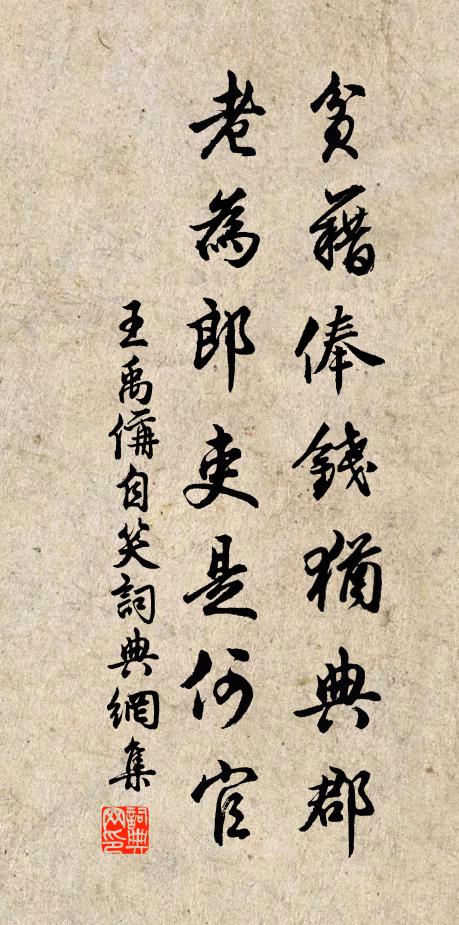 貧藉俸錢猶典郡
老為郎吏是何官
王禹偁自笑詞典網集
詞典网印